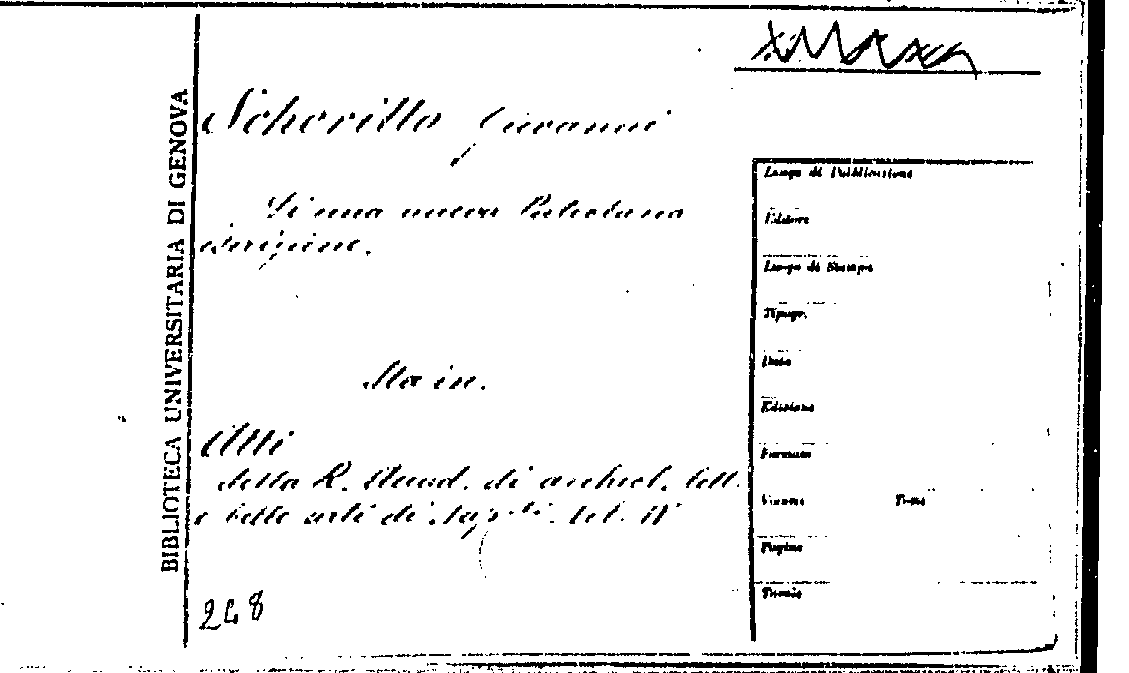 BIBLIOTECA UNIVERSITARIA DI GENOVA
Scherillo Giovanni
Di una nuova Puteolana
iscrizione.
Sta in.
Atti
della R. Accad. di archeol. lett.
e belle arti di Napoli. Vol. IV
248
Luogo di Pubblicazione
Editore
Luogo di Stampa
Tipogr.
Data
Edizione
Formato
Volume Tomo
Pagine